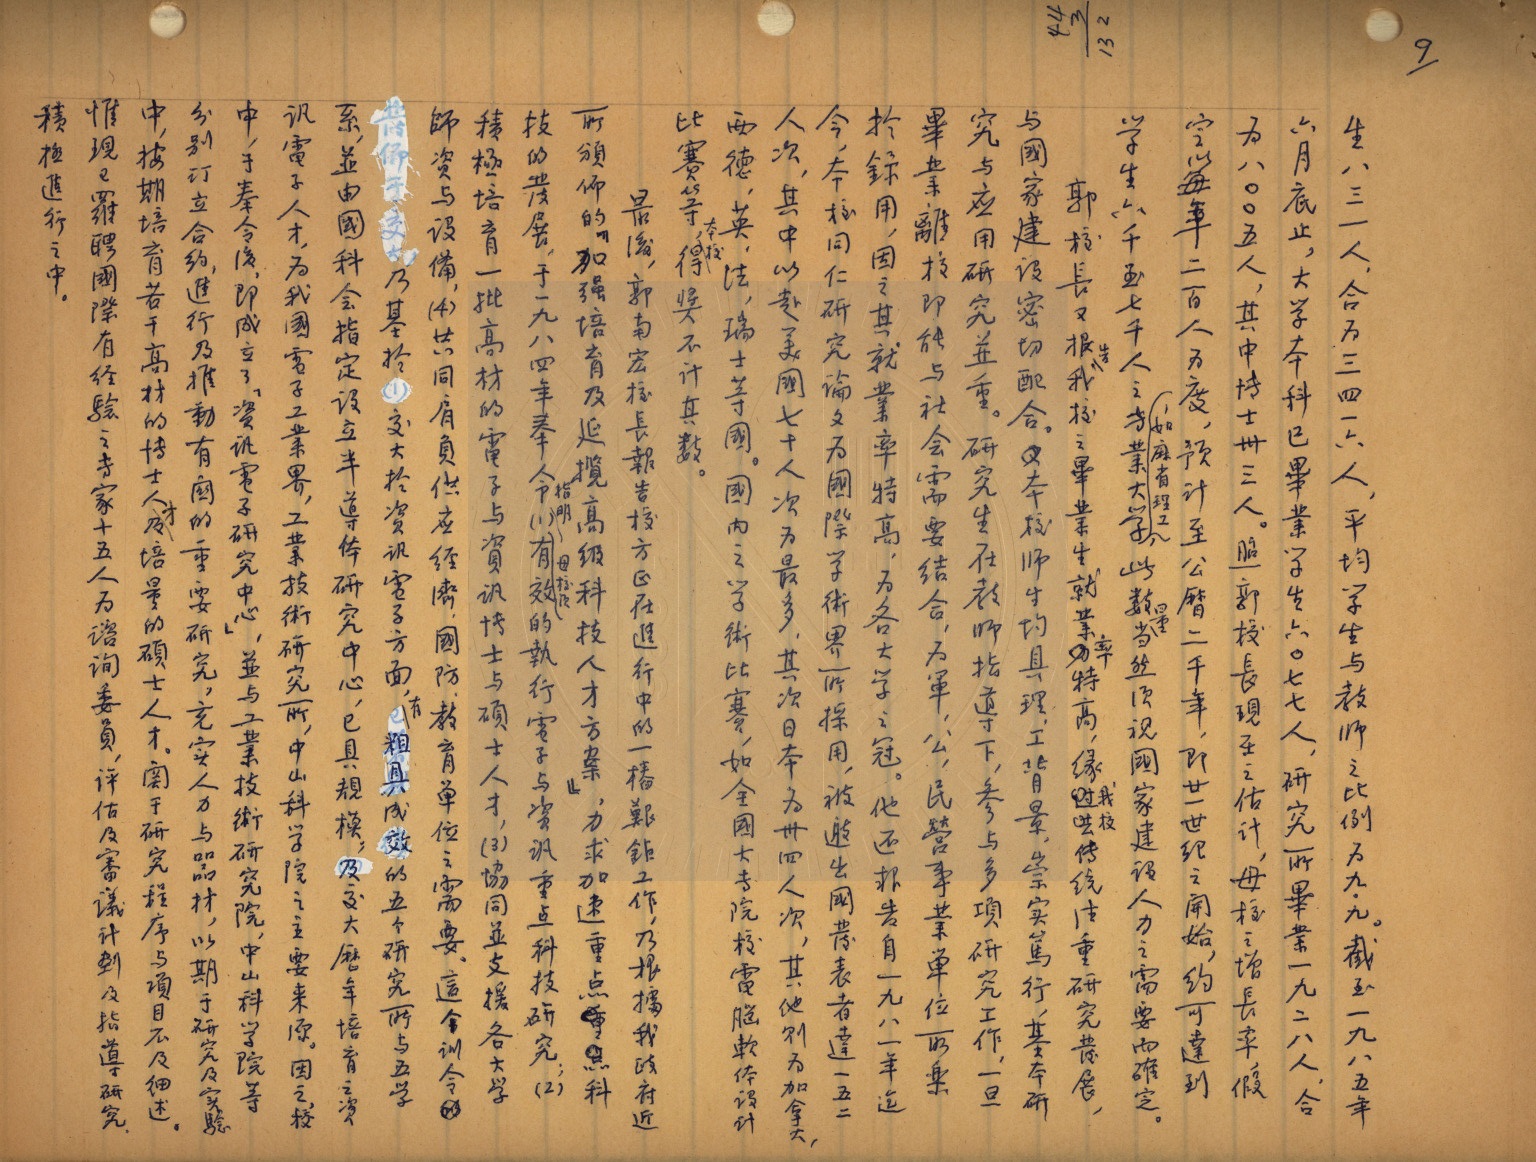 9
44
3
132
生八三一人，合为三四一六人，平均学生与教师之比例为九·九。截至一九八五年
六月底止，大学本科已畢業学生六〇七七人，研究所畢業一九二八人，合
为八〇〇五人，其中博士卅三人。照郭校長現至之估计，母校之增長率假
定以每年二百人为度，预计至公曆二千年，即廿一世纪之開始，约可達到
学生六千至七千人之专業大学（如麻省理工），此数量当然须視國家建設人力之需要而確定。
郭校長又报告我校之畢業生就業率特高，缘我校传统注重研究發展，
与國家建設密切配合。本校师生均具理，工背景，崇实篤行，基本研
究与应用研究並重。研究生在教师指導下，参与多項研究工作，一旦
畢業離校即能与社会需要结合，为軍，公，民營事業单位所樂
於錄用，因之其就業率特高，为各大学之冠。他还报告自一九八一年迄
今，本校同仁研究論文为國際学術界所採用，被邀出國發表者達一五二
人次，其中以赴美國七十人次为最多，其次日本为卅四人次，其他则为加拿大，
西德，英，法，瑞士等國。國内之学術比賽，如全國大专院校電腦軟体設计
比賽等，本校得奖不计其数。
最後，郭南宏校長報告校方正在進行中的一樁艱鉅工作，乃根據我政府近
所頒佈的「加强培育及延攬高级科技人才方案」，力求加速重点科
技的發展，于一九八四年奉令指明母校应(1)有效的執行電子与资讯重点科技研究；(2)
積極培育一批高材的電子与資訊博士与碩士人才，(3)協同並支援各大学
師資与设備，(4)共同肩負供应经濟，國防，教育单位之需要。這訓令
乃基於(1)交大於资讯電子方面，已有粗具成效的五个研究所与五学
系，並由國科会指定设立半導体研究中心，已具規模，及交大歷年培育之资
讯電子人才，为我國電子工業界，工業技術研究所，中山科学院之主要来源。因之，校
中，于奉令後，即成立了「资讯電子研究中心」，並与工業技術研究院，中山科学院等
分别订立合约，進行及推動有関的重要研究，充实人力与器材，以期于研究及实驗
中，按期培育若干高材的博士人才及培量的碩士人才。関于研究程序与項目不及细述。
惟現已羅聘國際有经驗之专家十五人为諮询委員，评估及審議计劃及指導研究，
積極進行之中。